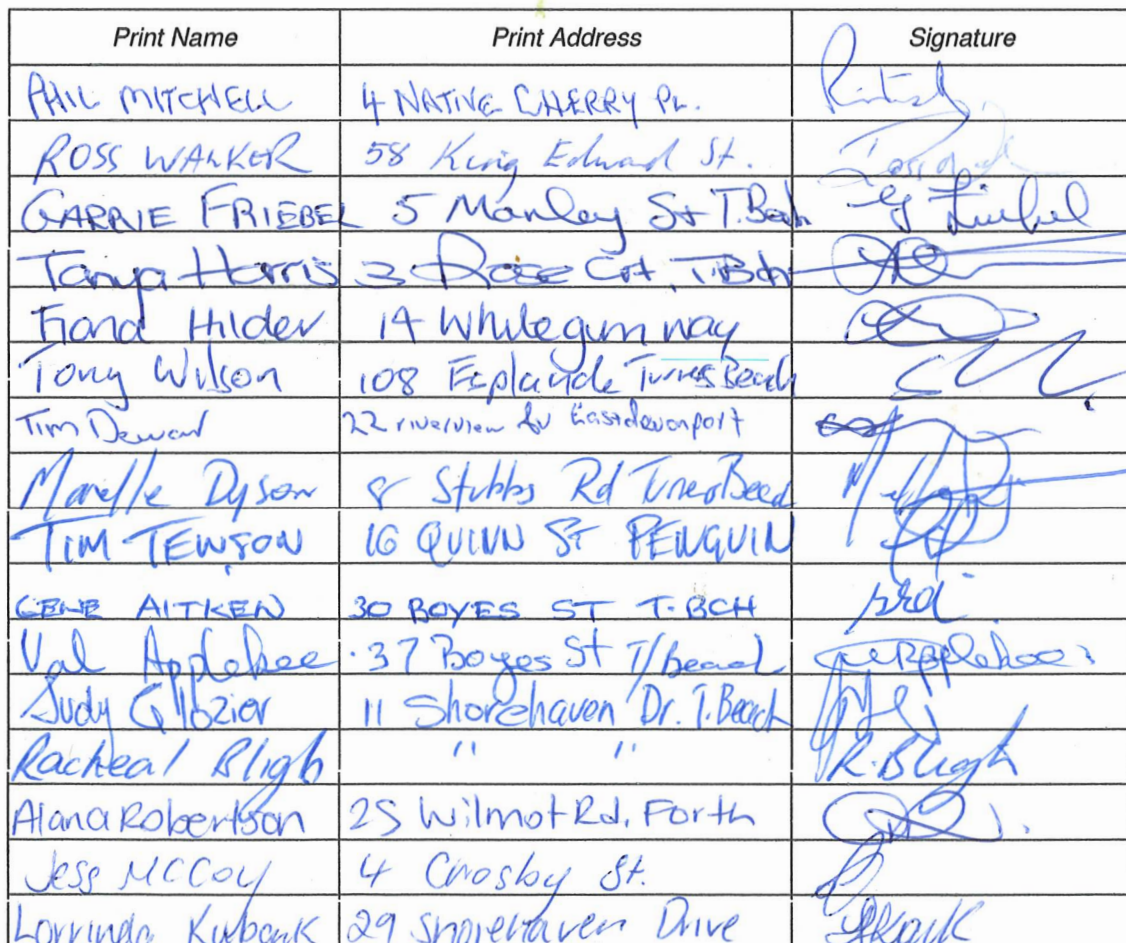 Print Name Print Address Signature
PHIL MITCHELL 4 NATIVE CHERRY PL.
ROSS WALKER 58 King Edward St.
GARRIE FRIEBEL 5 Manley St T.Bech
Tanya Harris 3 Rose Crt, T.Bch
Fiona Hilder 14 Whitegum way
Tony Wilson 108 Esplande Turners Beach
Tim Dewar 22 riverview Av Eastdevonport
Marelle Dyson 8 Stubbs Rd
TIM TEWSON 16 QUINN ST PENGUIN
GENE AITKEN 30 BOYES ST T.BCH
Val Applebee 37 Boyes St T/beach
Judy 11 Shorehaven Dr. T.Beach
Racheal Bligh " " R.Bligh
Alana Robertson 25 Wilmot Rd, Forth
Jess McCoy 4 Crosby St.
Lorrinda 29 Shorehaven Drive